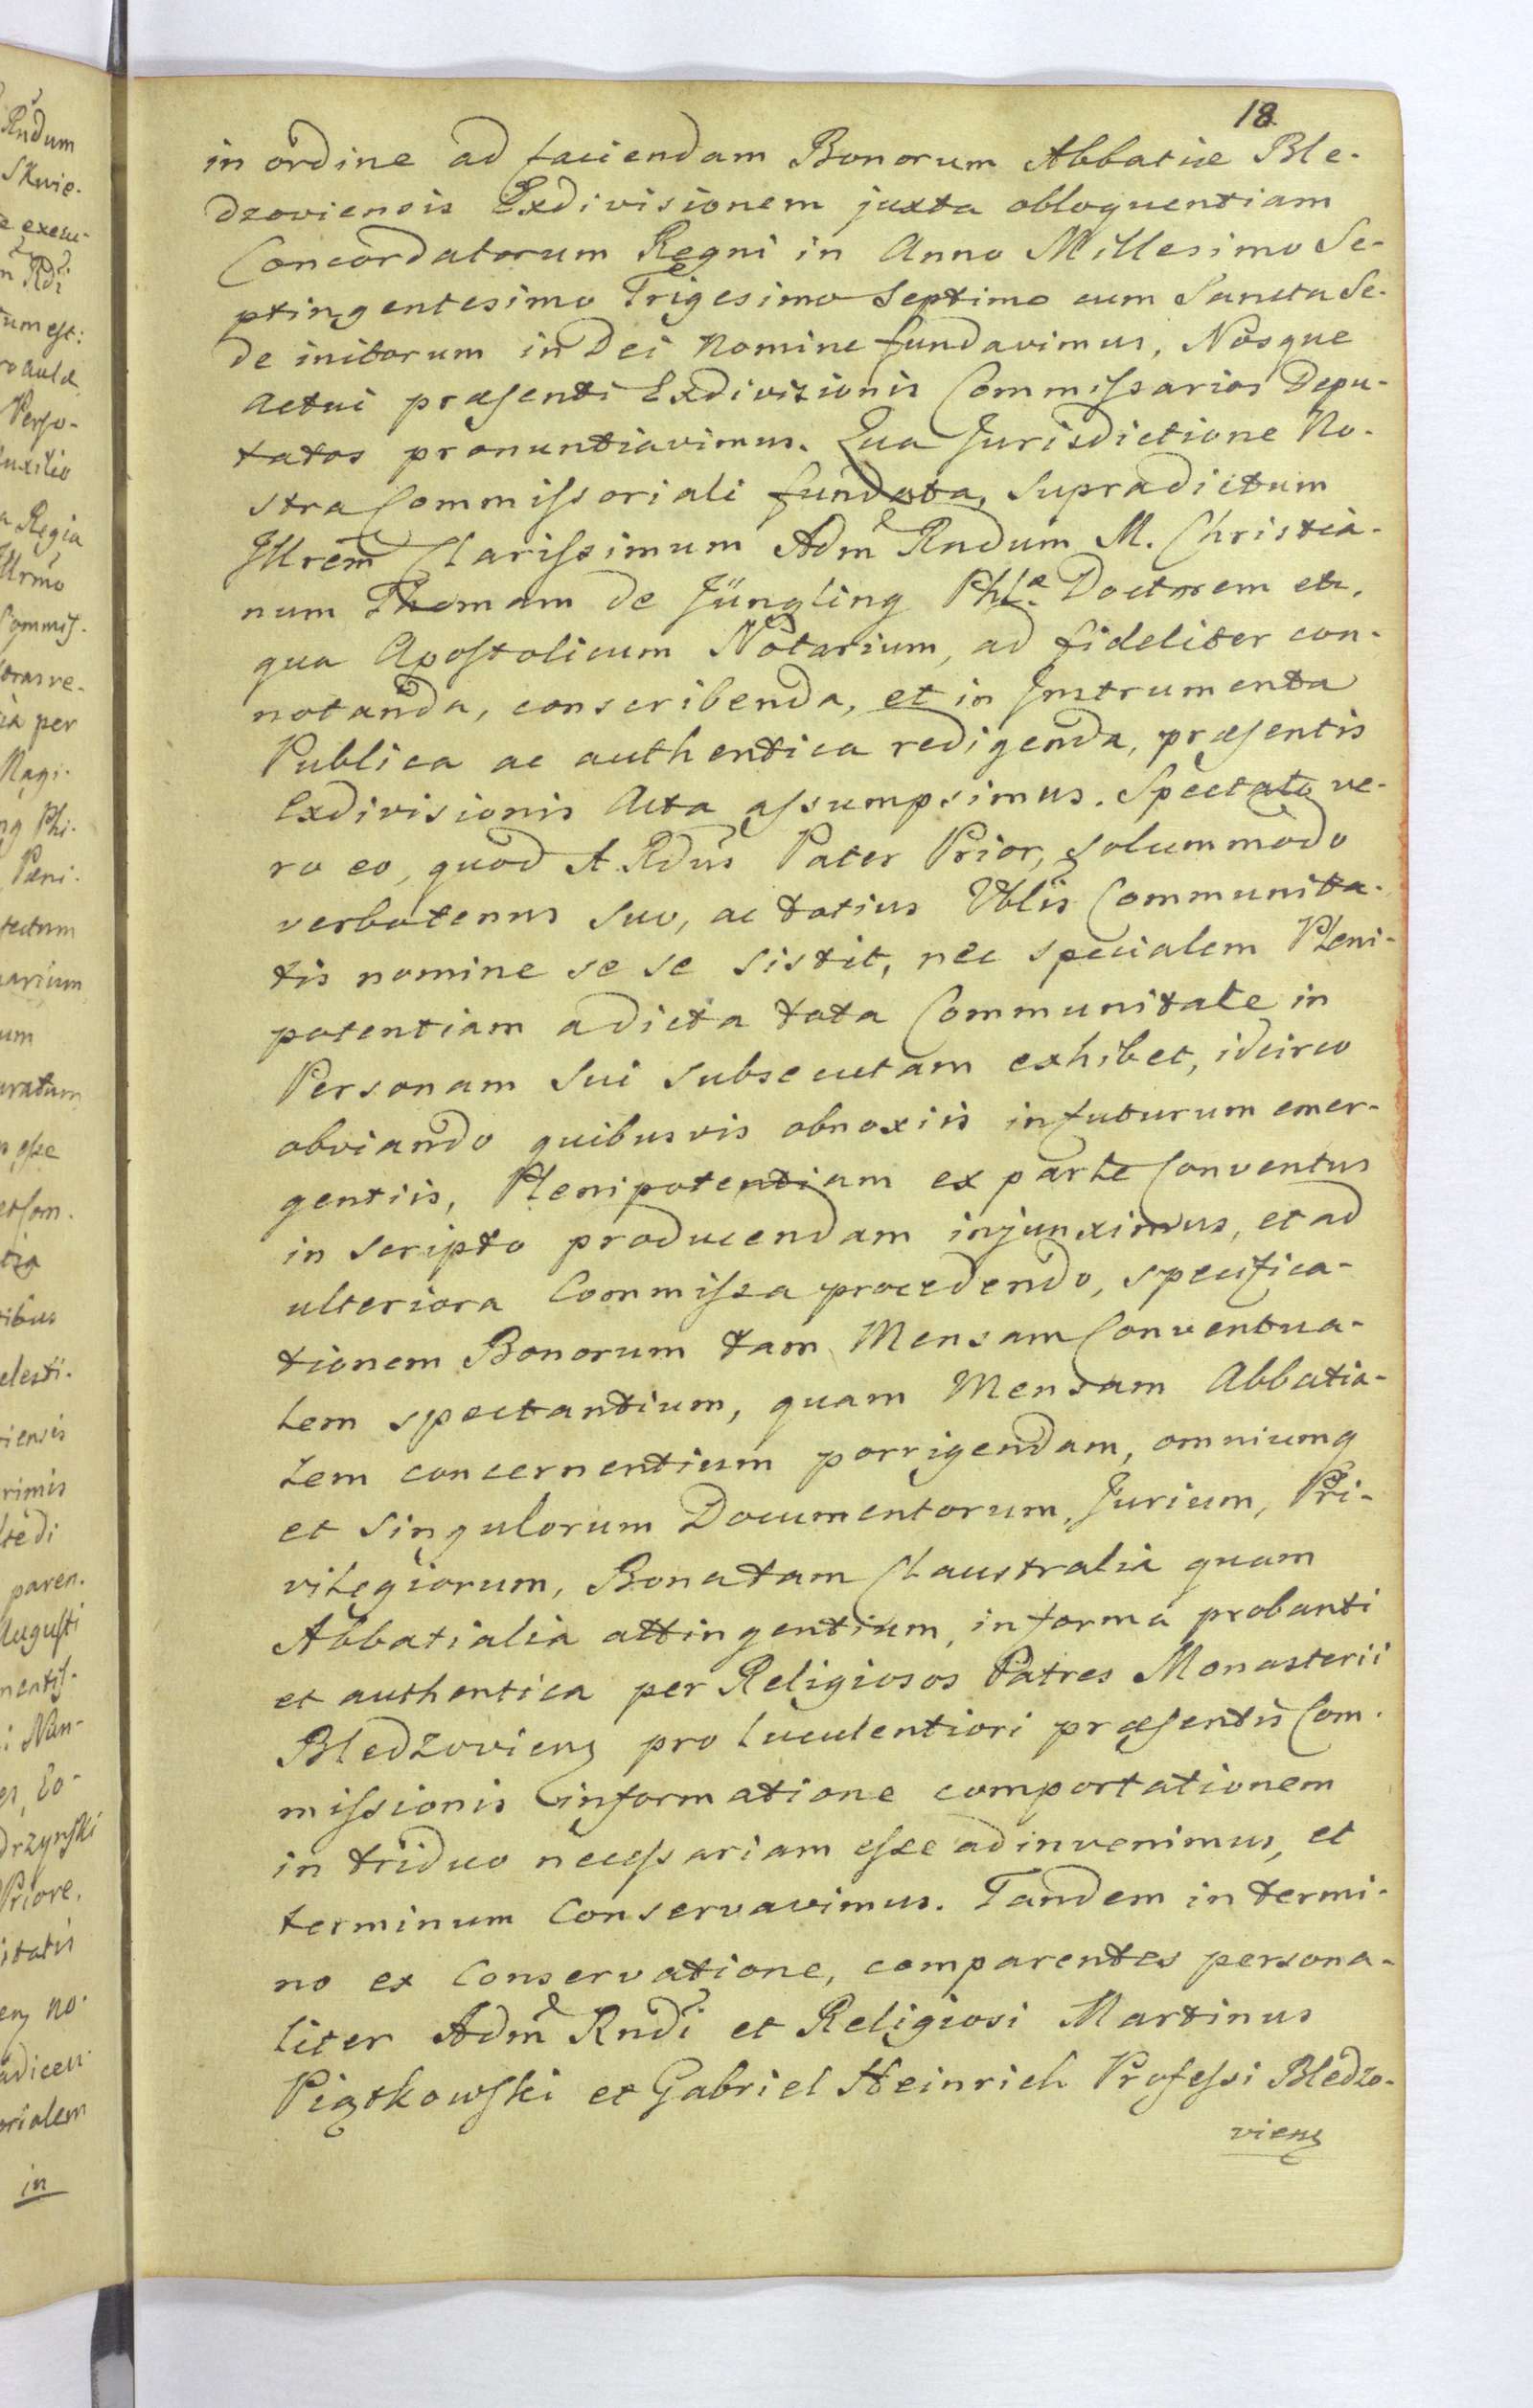 18.
in ordine ad faciendam Bonorum Abbatiæ Ble-
dzoviensis Exdivisionem juxta obloquentiam
Concordatorum Regni in Anno Millesimo Se-
ptingentesimo Trigesimo Septimo cum Sancta Se-
de initorum in Dei Nomine fundavimus, Nosque
actui præsenti Exdivisionis Commissarios Depu-
tatos pronuntiavimus. Qua Jurisdictione No-
stra Commissoriali fundata, supradictum
Illrem Clarissimum Adm Rndum M. Christia-
num Thomam de Jüngling Phlæ Doctorem etc.
qua Apostolicum Notarium, ad fideliter con-
notanda, conscribenda, et in Instrumenta
Publica ac authentica redigenda, præsentis
Exdivisionis Acta assumpsimus. Spectato ve-
ro eo, quod A Rdus Pater Prior, solummodo
verbotenus suo, ac totius Vblis Communita-
tis nomine se se sistit, nec specialem Pleni-
potentiam a dicta tota Communitate in
Personam sui subsecutam exhibet, idcirco
obviando quibusvis obnoxiis in futurum emer-
gentiis, Plenipotentiam ex parte Conventus
in scripto producendam injunximus, et ad
ulteriora Commissa procedendo, specifica-
tionem Bonorum tam Mensam Conventua-
lem spectantium, quam Mensam Abbatia-
lem concernentium porrigendam, omniumq
et singulorum Documentorum, Jurium, Pri-
vilegiorum, Bona tam Claustralia quam
Abbatialia attingentium, in forma probanti
et authentica per Religiosos Patres Monasterii
Bledzoviens pro luculentiori præsentis Com-
missionis informatione comportationem
in triduo necessariam esse adinvenimus, et
terminum Conservavimus. Tandem in termi-
no ex Conservatione, comparentes persona-
liter Adm Rndi et Religiosi Martinus
Piątkowski et Gabriel Heinrich Professi Bledzo-
viens